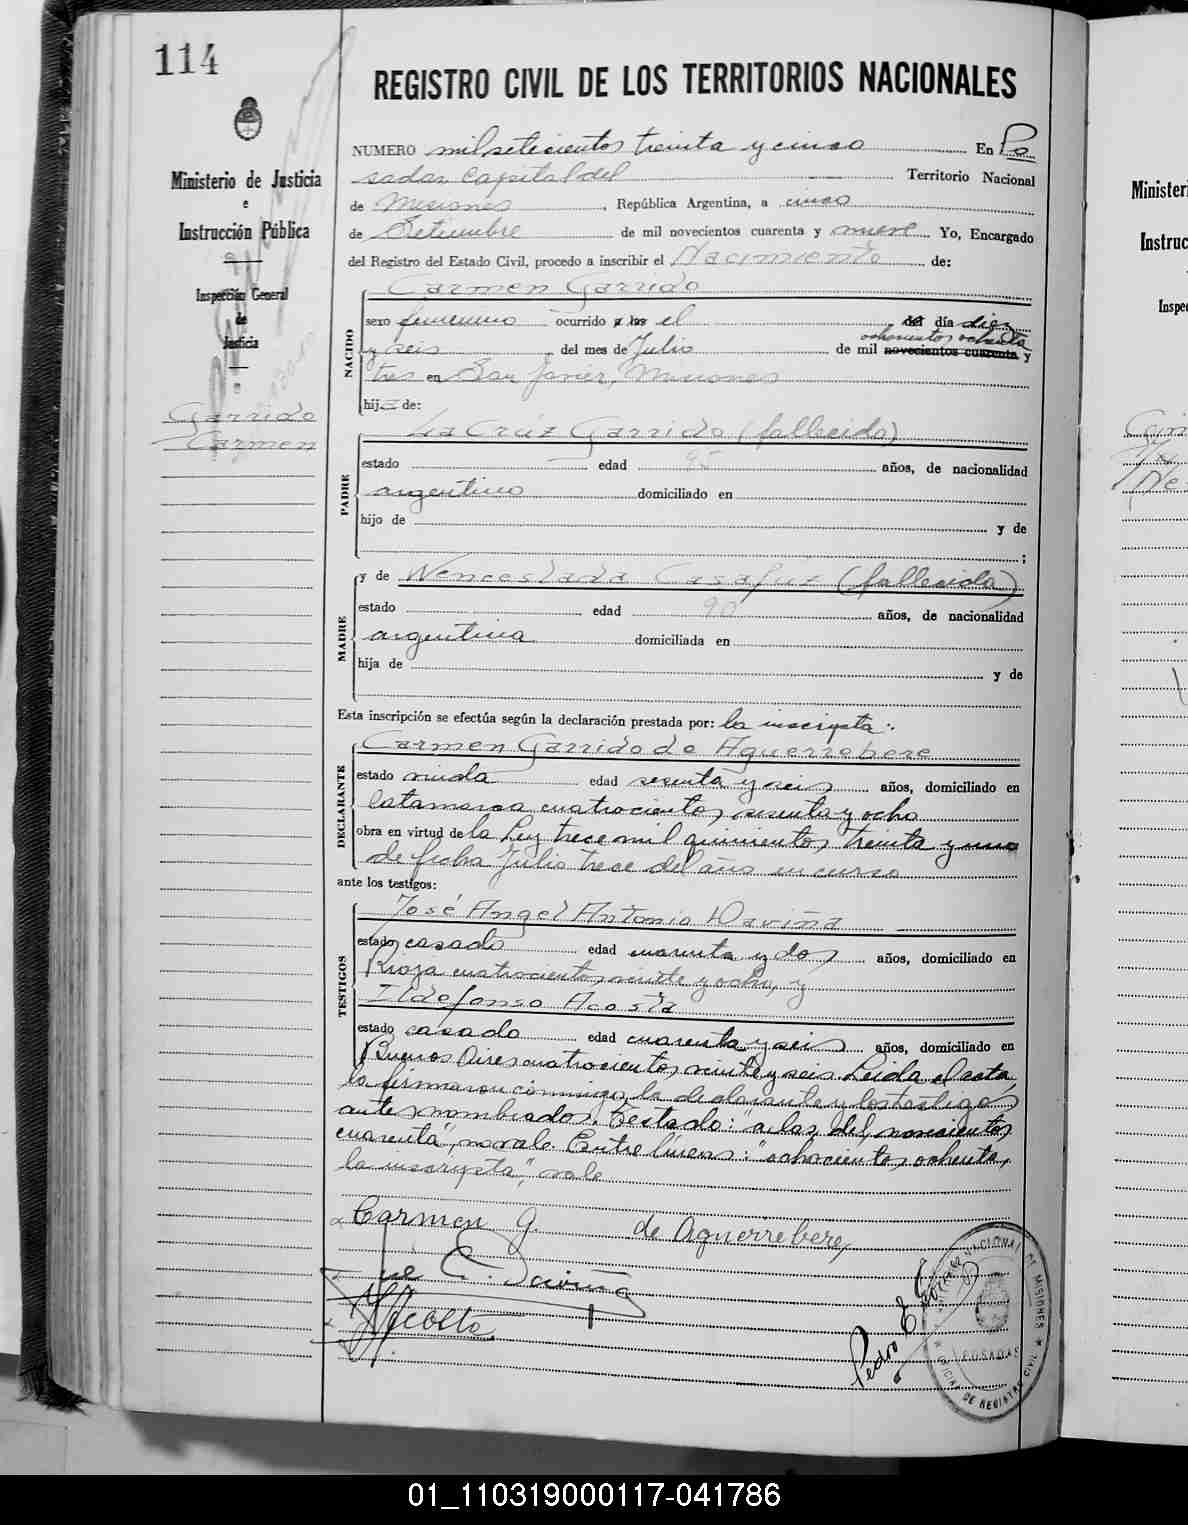 114
REGISTRO CIVIL DE LOS TERRITORIOS NACIONALES
Ministerio de Justicia
e
Instrucción Pública
Inspección General
de
Justicia
Garrido
Carmen
NUMERO mil setecientos treinta y cinco En Po
sadas Capital del Territorio Nacional
de Misiones, República Argentina, a cinco
de Setiembre de mil novecientos cuarenta y nueve Yo, Encargado
del Registro del Estado Civil, procedo a inscribir el Nacimiento de:
NACIDO
Carmen Garrido
sexo femenino ocurrido a las el del día diez
ochocientos ochenta
y seis del mes de Julio de mil novecientos cuarenta y
tres en San Javier, Misiones
hija de:
PADRE
La Crúz Garrido (fallecido)
estado edad 95 años, de nacionalidad
argentino domiciliado en
hijo de y de
;
MADRE
y de Wenceslada Casafúz (fallecida)
estado edad 90 años, de nacionalidad
argentina domiciliada en
hija de y de
Esta inscripción se efectúa según la declaración prestada por: la inscripta:
DECLARANTE
Carmen Garrido de Aguerrebere
estado viuda edad sesenta y seis años, domiciliado en
Catamarca cuatrocientos sesenta y ocho
obra en virtud de la Ley trece mil quinientos treinta y uno
de fecha Julio trece del año en curso
ante los testigos:
TESTIGOS
José Angel Antonio Daviña
estado casado edad cuarenta y dos años, domiciliado en
Rioja cuatrocientos veinte y ocho, y
Ildefonso Acosta
estado casado edad cuarenta y seis años, domiciliado en
Buenos Aires cuatrocientos veinte y seis. Leida el acta,
la firmaron conmigo, la declarante y los testigos
antes nombrados. Testado: "a las, del, novecientos
cuarenta", no vale. Entre líneas: "ochocientos ochenta,
la inscripta", vale
Carmen G. de Aguerrebere,
José A. Daviña
Acosta
Pedro E.
NACIONAL DE MISIONES
POSADAS
OFICINA DE REGISTRO CIVIL
Ministeri
Instruc
Inspe
01_110319000117-041786